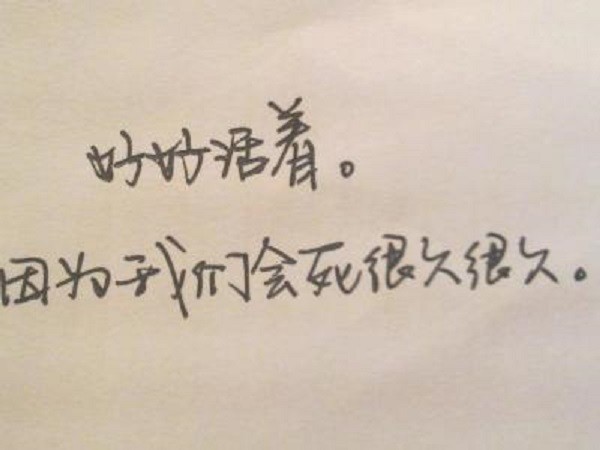 好好活着。
因为我们会死很久很久。